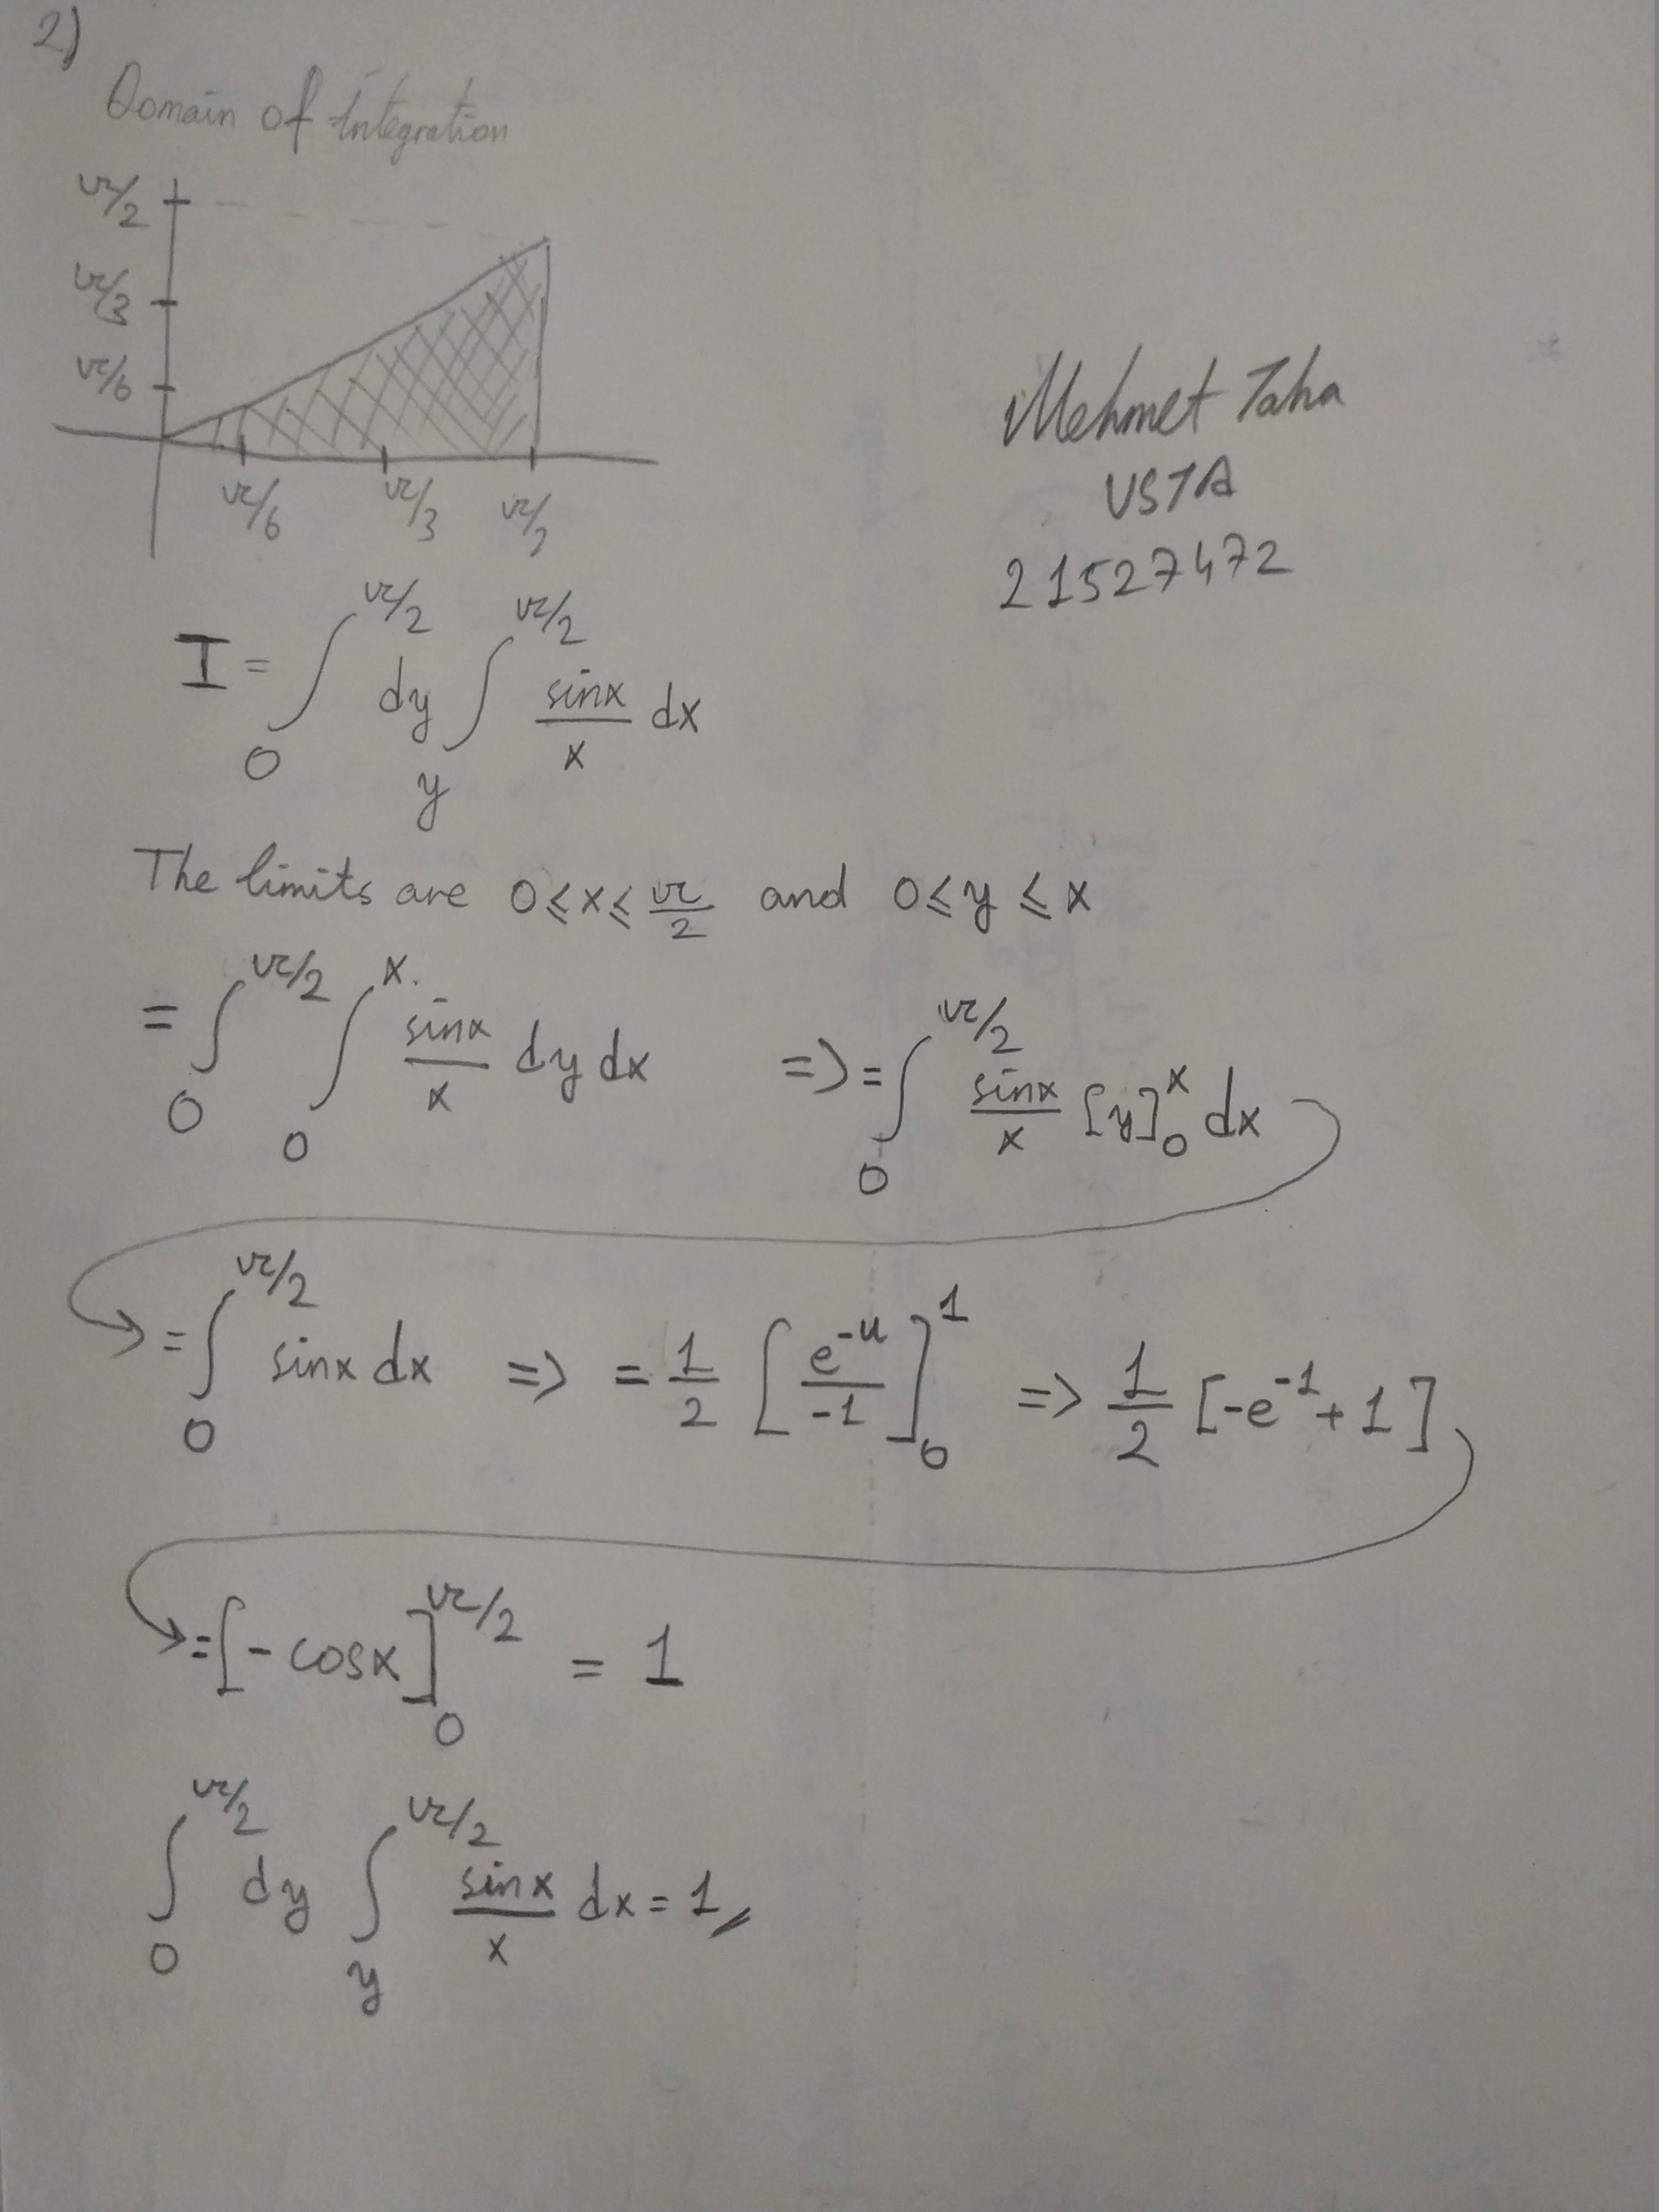 2)
Domain of Integration
π/2
π/3
π/6
π/6 π/3 π/2
Mehmet Taha
USTA
21527472
I = ∫₀^{π/2} dy ∫_y^{π/2} sinx/x dx
The limits are 0 ≤ x ≤ π/2 and 0 ≤ y ≤ x
= ∫₀^{π/2} ∫₀^x sinx/x dy dx => = ∫₀^{π/2} sinx/x [y]₀^x dx
= ∫₀^{π/2} sinx dx => = 1/2 [e^{-u}/-1]₀^1 => 1/2 [-e^{-1}+1]
= [-cosx]₀^{π/2} = 1
∫₀^{π/2} dy ∫_y^{π/2} sinx/x dx = 1